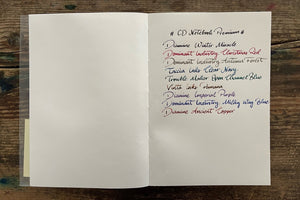 # CD Notebook Premium #
Diamine Winter Miracle
Dominant Industry Christmas Red
Dominant Industry Autumn Forest
Taccia inks Clear Navy
Trouble Maker Boon Channel Blue
Vinta inks Humana
Diamine Imperial Purple
Dominant Industry Milky Way Blue
Diamine Ancient Copper